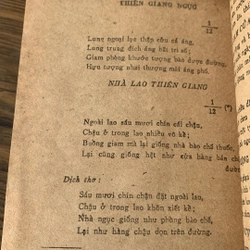 THIÊN GIANG NGỤC
1
12
Lung ngoại lao thập cửu cá áng,
Lung trung đích áng bất tri số;
Giam phòng khước tượng bào dược đường,
Hựu tượng nhai thượng mãi áng phố.
NHÀ LAO THIÊN GIANG
1
12 (*)
Ngoài lao sáu mươi chín cái chậu,
Chậu ở trong lao nhiều vô kể;
Buồng giam mà lại giống nhà bào chế thuốc,
Lại cũng giống hệt như cửa hàng bán chậu
đường.
Dịch thơ :
Sáu mươi chín chậu đặt ngoài lao,
Chậu ở trong lao khôn xiết kể;
Nhà ngục giống như phòng bào chế,
Lại như hàng chậu dọn trên đường.